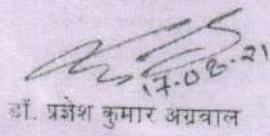 17.08.21
डॉ. प्रज्ञेश कुमार अग्रवाल